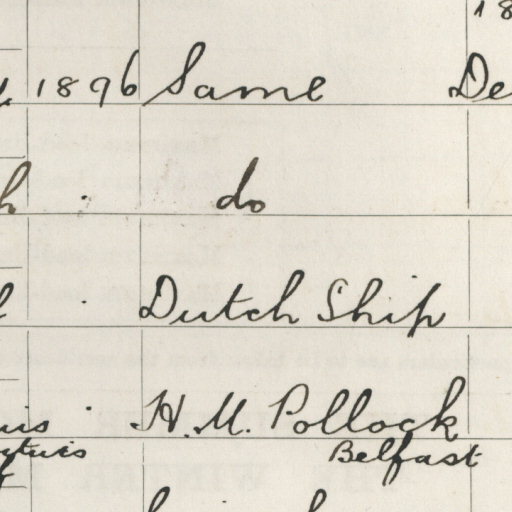 18
1896 Same De
do
Dutch Ship
H. M. Pollock
Belfast